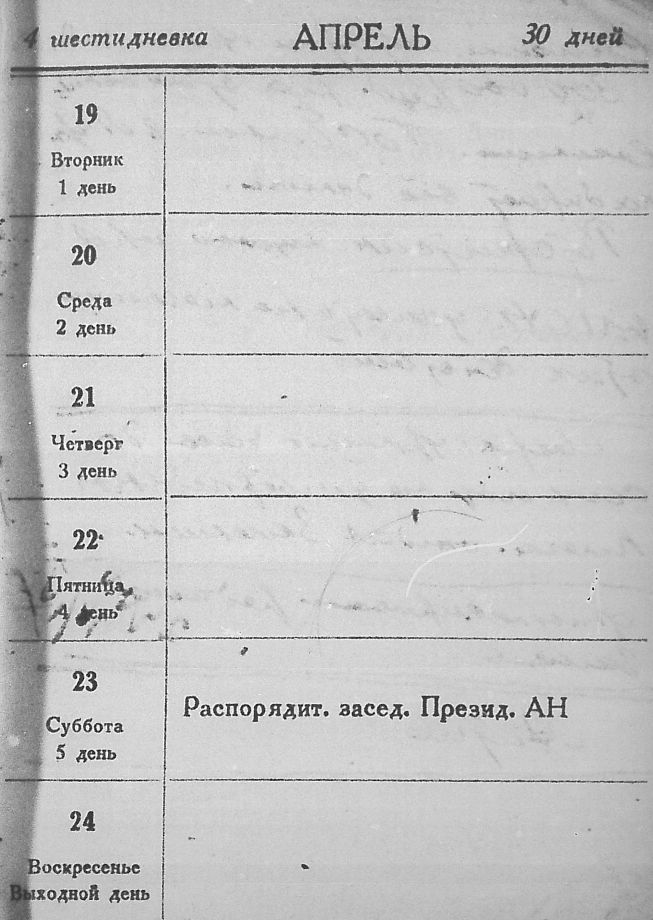 4 шестидневка АПРЕЛЬ 30 дней
19
Вторник
1 день
20
Среда
2 день
21
Четверг
3 день
22
Пятница
4 день
23
Суббота
5 день
Распорядит. засед. Презид. АН
24
Воскресенье
Выходной день